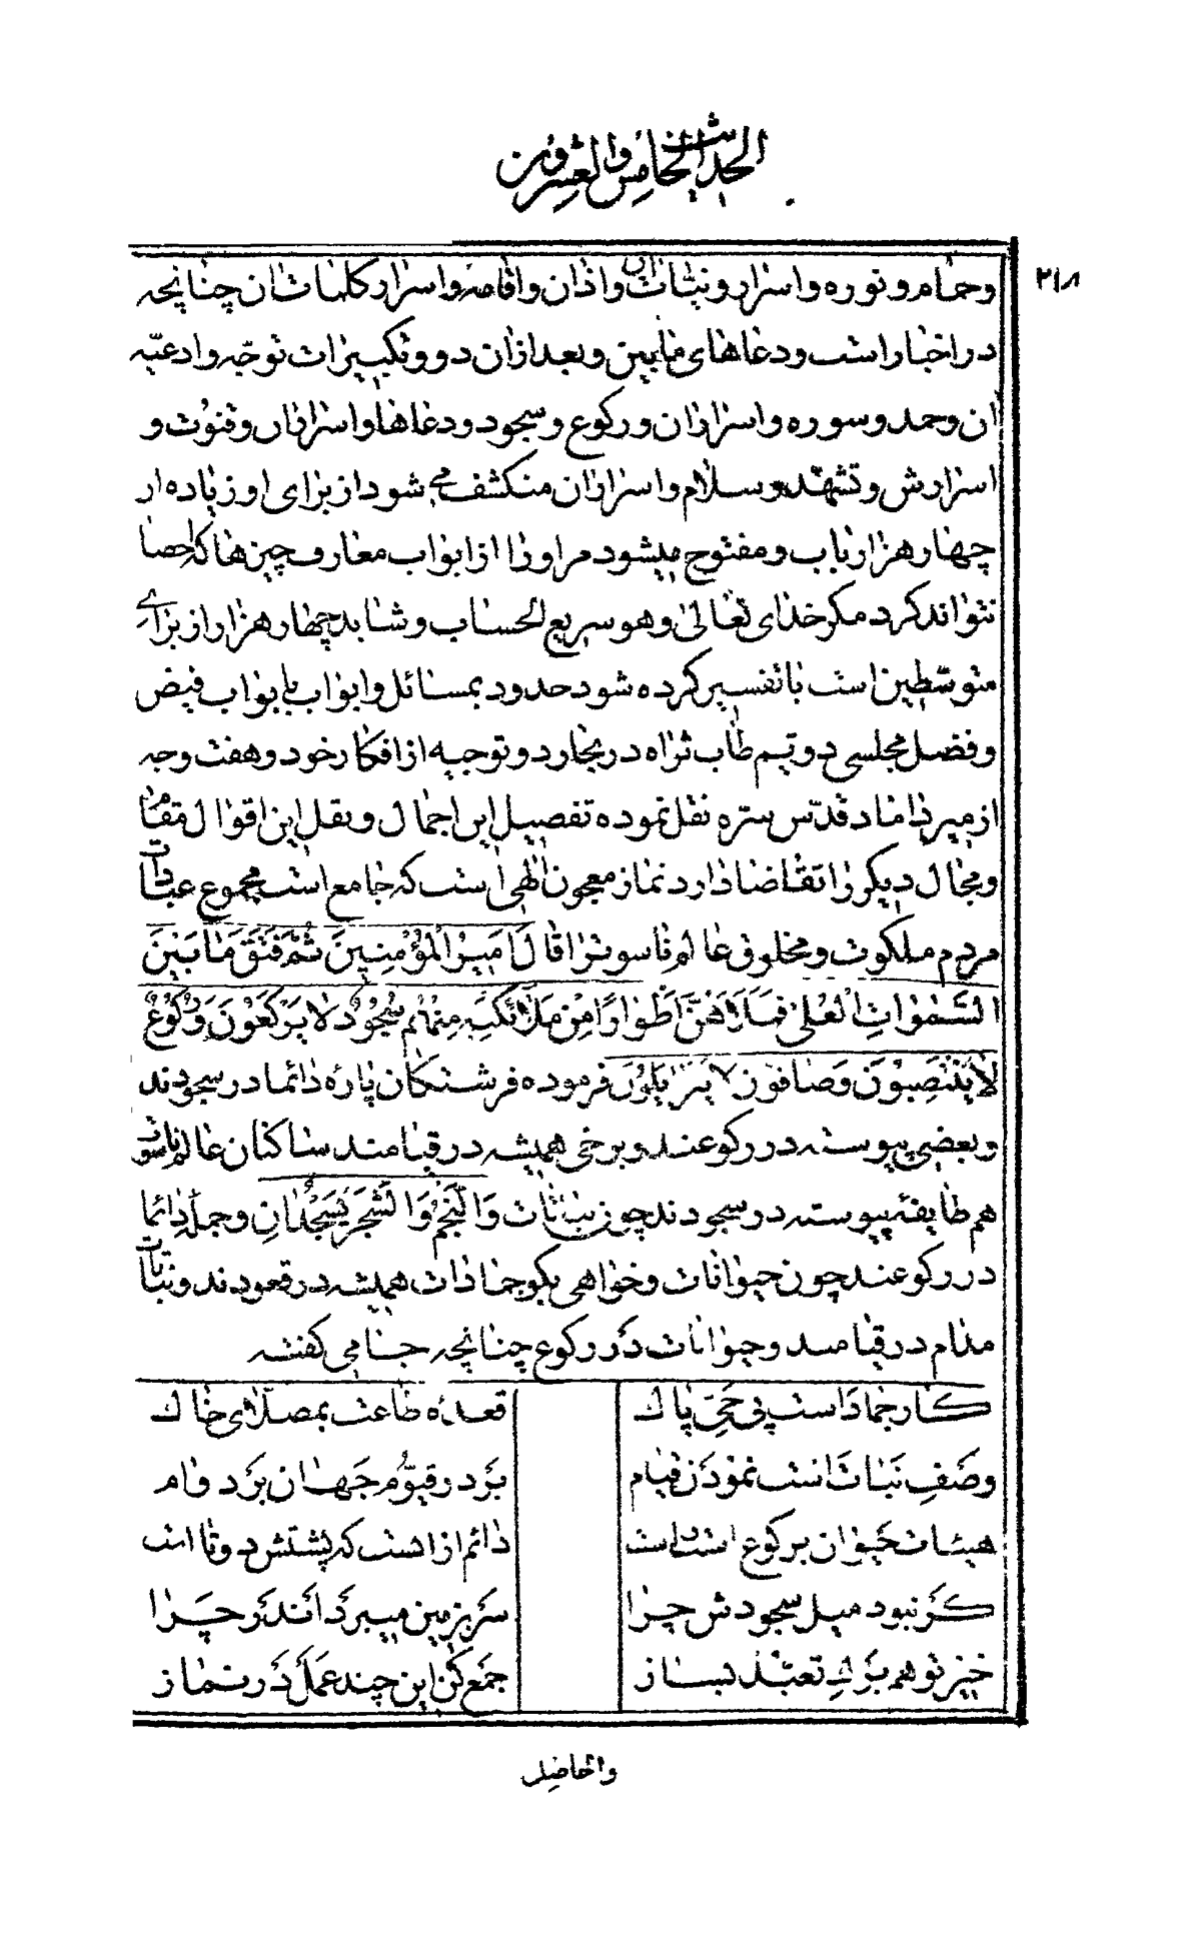 الحدیث الخامس والعشرون
۳۱۸
وحمام ونوره واسرار ونیّات ان واذان واقامه واسرار کلمات ان چنانچه
در اخبار است ودعاهای مابین وبعد از ان دو وتکبیرات توجّه وادعیّه
ان وحمد وسوره واسرار ان ورکوع وسجود ودعاها واسرار ان وقنوت و
اسرارش وتشهّد وسلام واسرار ان منکشف می شود از برای او زیاده از
چهار هزار باب ومفتوح میشود مر او را از ابواب معارف چیزها که احصا
نتواند کرد مکر خدای تعالی وهو سریع الحساب وشاید چهار هزار از برای
متوسّطین است یا تفسیر کرده شود حدود بمسائل وابواب بابواب فیض
وفضل مجلسی دوّیم طاب ثراه در بحار دو توجیه از افکار خود وهفت وجه
از میرداماد قدّس سرّه نقل نموده تفصیل این اجمال ونقل این اقوال مقام
ومجال دیکر را تقاضا دارد نماز معجون الهی است که جامع است مجموع عبادات
مردم ملکوت ومخلوق عالم ناسوترا قال امیر المؤمنین ثمّ فتق ما بین
السّموات العلی فملأهنّ اطوارا من ملائکته منهم سجود لا یرکعون ورکوع
لا ینتصبون وصافون لا یتزایلون فرموده فرشتکان پاره دائما در سجودند
وبعضی پیوسته در رکوعند وبرخی همیشه در قیامند ساکنان عالم ناسوت
هم طایفه پیوسته در سجودند چون نباتات والنّجم والشّجر یسجدان وجمله دائما
در رکوعند چون حیوانات وخواهی بکو جمادات همیشه در قعودند ونباتات
مدام در قیامند وحیوانات در رکوع چنانچه جامی کفته
کار جماد است پی حیّ پاک
قعده طاعت بمصلّای خاک
وصف نبات است نمودن قیام
بر در قیّوم جهان بر دوام
هیئات حیوان برکوع است راست
دائم از انست که پشتش دوتاست
کر نبود میل سجودش چرا
سر بزمین میبرد اندر چرا
خیز تو هم برک تعبّد بساز
جمع کن این چند عمل در نماز
والحاصل